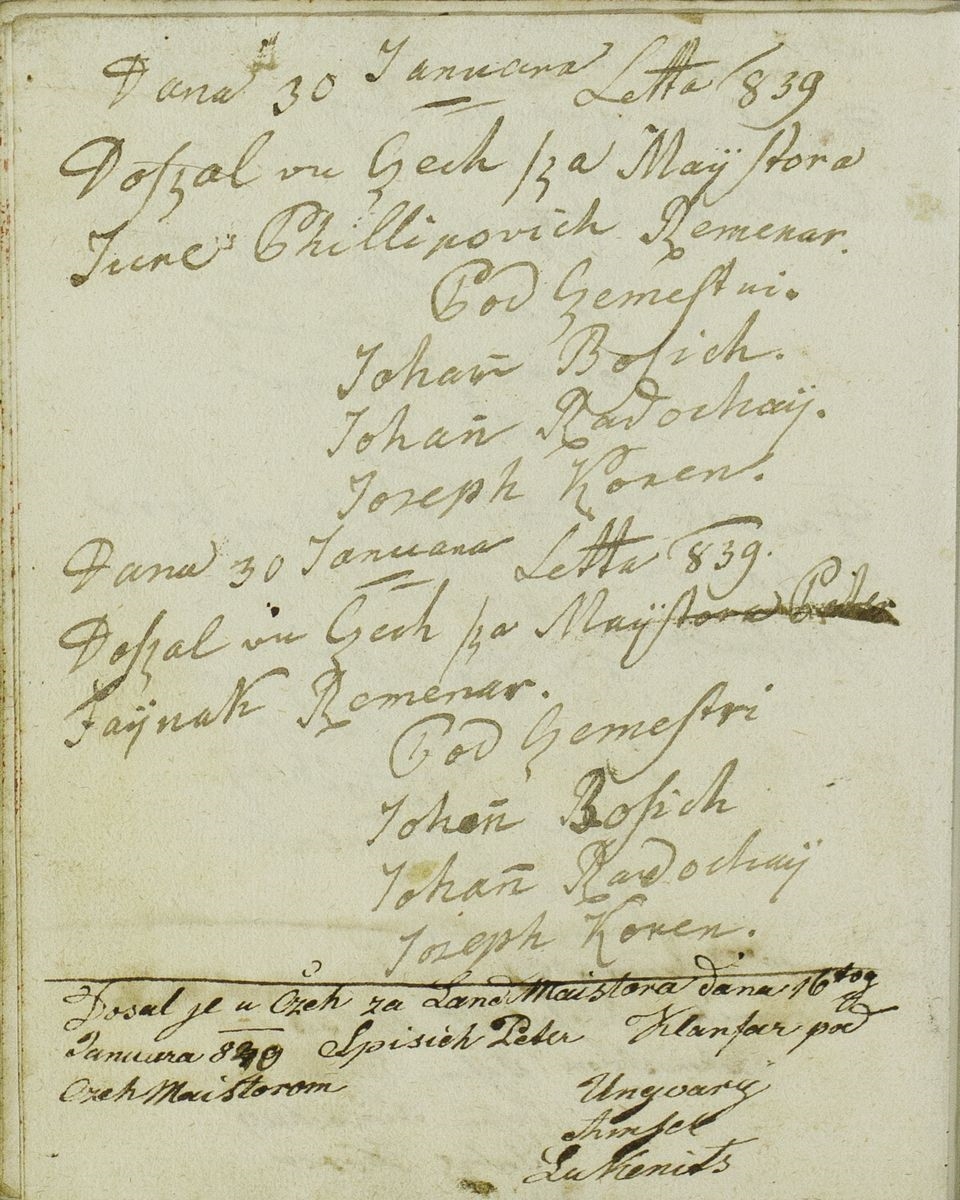 Dana 30 Januara Letta 839
Doſzal vu Czech ſza Maÿſtora
Jure Phillipovich Remenar.
Pod Czemeſtri.
Johan̄ Boſich.
Johan̄ Radochaÿ.
Joseph Koren.
Dana 30 Januara Letta 839.
Doſzal vu Czech ſza Maÿſtora Peter
Faÿnak Remenar.
Pod Czemeſtri
Johan̄ Boſich
Johan̄ Radochaÿ
Joseph Koren.
Dosal je u Czeh za Land Maistora dana 16tog
Januara 839 Spisich Peter Klanfar pod
Czeh Maistorom
Ungvarÿ
Lukenits